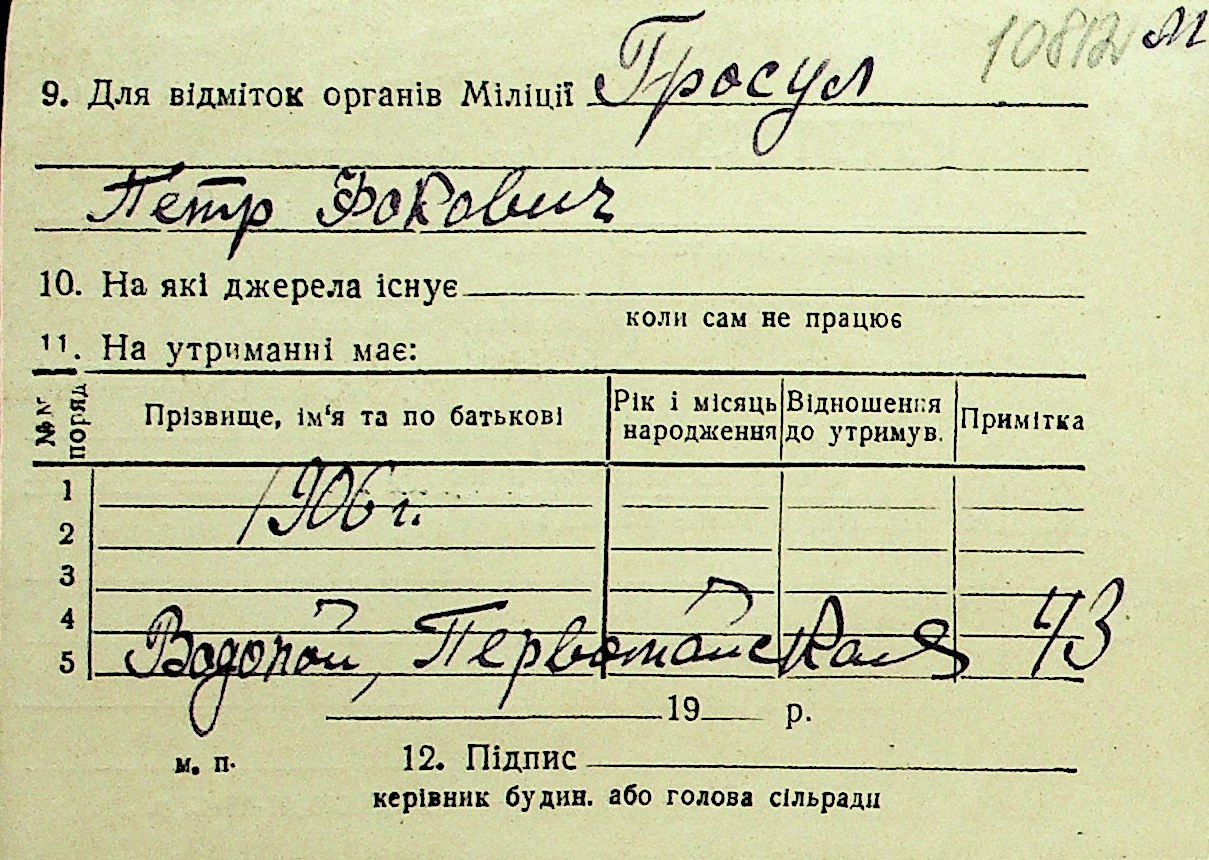 10812 М
9. Для відміток органів Міліції Гросул
Петр Фокович
10. На які джерела існує
коли сам не працює
11. На утриманні має:
№№ поряд
Прізвище, ім‘я та по батькові
Рік і місяць народження
Відношення до утримув.
Примітка
1
1906 г.
2
3
4
5
Водопой, Первомайская 43
19 р.
м. п. 12. Підпис
керівник будин. або голова сільради